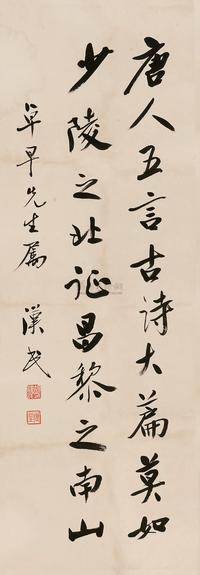 唐人五言古诗大篇莫如
少陵之北征昌黎之南山
卓早先生属 漢民